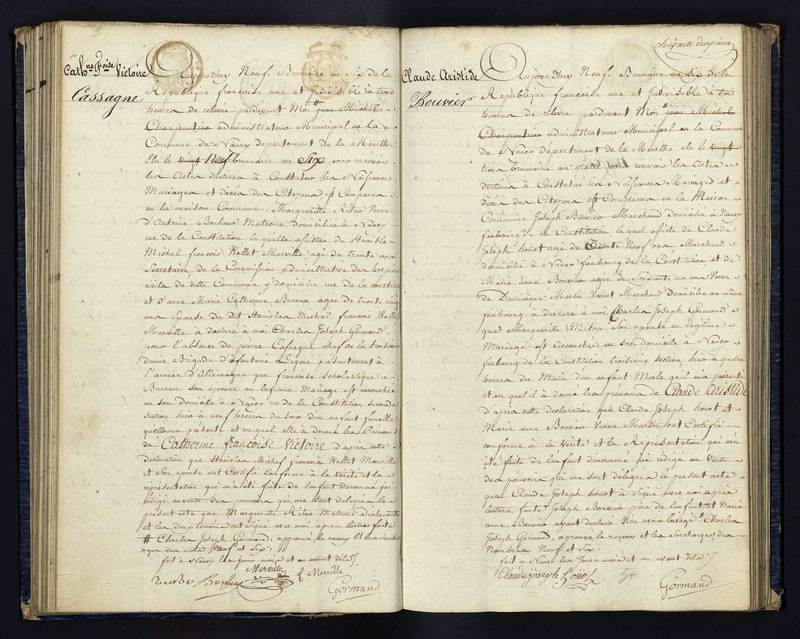 Cath.ne F.oise Victoire
Cassagne
Aujourdhuy Neuf Brumaire an Six de la
République française une et Indivisible à trois
heures de relevée pardevant Moi jean Michel
Charpentier administrateur Municipal en la
Commune de Nancy département de la Meurthe
Elu le Neuf brumaire an Six pour recevoir
les Actes destinés à Constater les Naissances
Mariages et décès des Citoyens Est Comparue en
la maison Commune Marguerite Veuve
d'Antoine Matrone domiciliée à Nancy
rue de la Constitution laquelle assistée de Stanislas
Michel françois Vallet Merville agé de trente ans
Secrétaire de la administrative des
civils de cette Commune y domicilié rue de la Constitution
et d'anne Marie Catherine Bureau agée de trente cinq
ans Epouse du dit Stanislas Michel François Vallet
Merville a déclaré à moi Charles Joseph Gormand
pour l'absence de pierre Cassagne chef de la troisieme
demie Brigade d'infanterie Légère présentement à
l'armée d'Allemagne que francoise Scholastique
Bureau son épouse en légitime Mariage est accouchée
en son domicile à Nancy rue de la Constitution seconde
Section hier à neuf heures du soir d'un enfant femelle
quelle me présente et auquel elle a donné les prénoms
de Catherine françoise Victoire d'après cette
déclaration que Stanislas Michel françois Vallet Merville
et Son épouse ont Certifié conforme à la vérité et la
représentation qui m'a été faite de l'enfant dénommé jai
rédigé en vertu des pouvoirs qui me sont délégués le
présent acte que Marguerite Matrone déclarante
et les deux témoins ont signé avec moi après lecture faite
Charles Joseph Gormand, approuvé le renvoi et la surcharge
des mots Neuf et Six
fait à Nancy les jour mois et an avant dits
Merville
Merville
Gormand
Soixante
Claude Aristide
Bouvier
Aujourdhuy Neuf Brumaire an Six de la
République française une et Indivisible à trois
heures de relevée pardevant Moi jean Michel
Charpentier administrateur Municipal en la Commune
de Nancy département de la Meurthe élu le vingt
brumaire an recevoir les Actes
destinés à Constater les Naissances Mariages et
décès des Citoyens Est Comparu en la Maison
Commune Joseph Bouvier Marchand domicilié à Nancy
faubourg de la Constitution lequel assisté de Claude
Joseph agé de Neuf ans Marchand
domicilié à Nancy faubourg de la Constitution et de
Marie anne Bouvier agée de Soixante un ans Veuve
de Dominique Martin Vivant Marchand domiciliée au même
faubourg a déclaré à moi Charles Joseph Gormand
que Marguerite Son épouse en légitime
Mariage est accouchée en son domicile à Nancy
faubourg de la Constitution troisieme Section, hier à quatre
heures du Matin d'un enfant Male qu'il m'a présenté
et auquel il a donné les prénoms de Claude Aristide
d'après cette déclaration que Claude Joseph et
Marie anne Bouvier Veuve Martin ont Certifié
conforme à la Vérité et la Représentation qui m'a
été faite de l'enfant dénommé jai rédigé en Vertu
des pouvoirs qui me sont délégués le présent acte
que Claude Joseph a Signé avec moi après
lecture faite Joseph Bouvier père de l'enfant et Marie
anne Bouvier ayant déclaré Charles
Joseph Gormand, approuvé le renvoi et la surcharge des
Neuf et Six
fait à Nancy les Jour mois et an avant dits
Claude joseph
Gormand